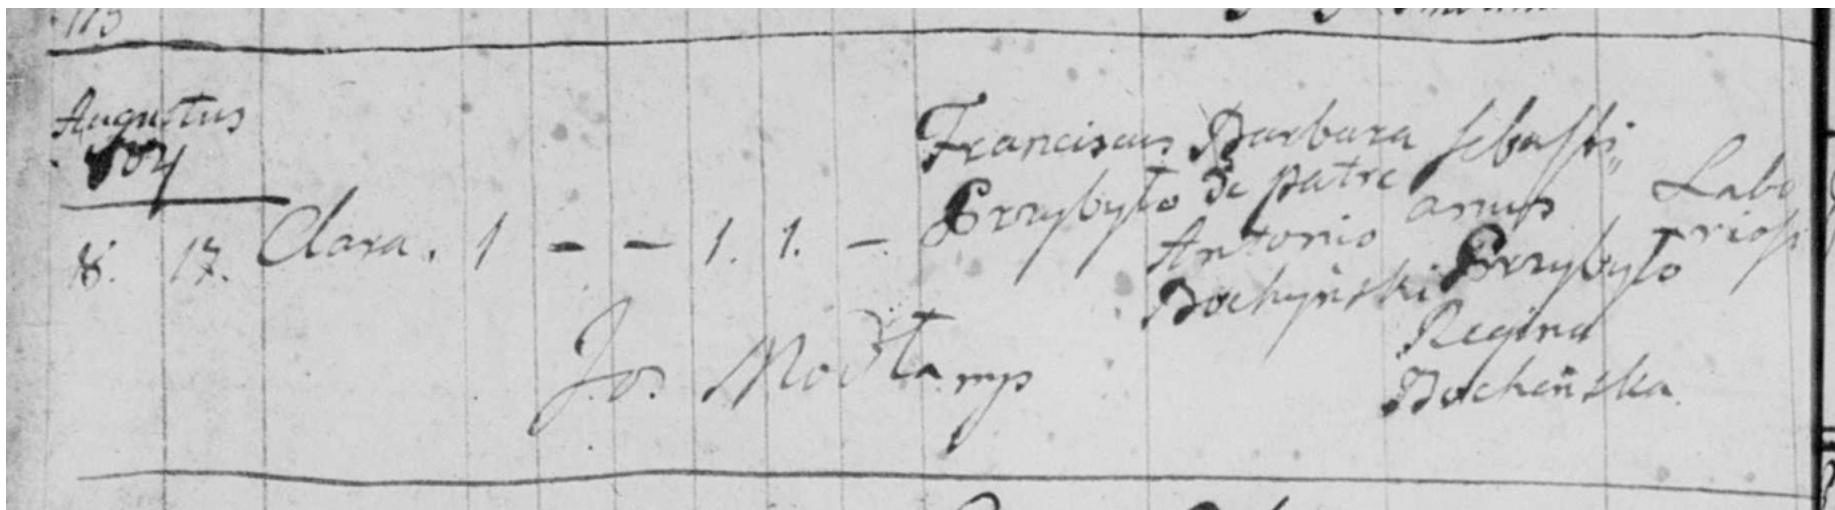 113
Augustus
804
18. 17. Clara. 1 – – 1. 1. –.
Franciscus
Przybyło
Barbara
de patre
Antonio
Bochyński
Sebasti„
anus
Przybyło
Regina
Bocheńska
Labo
riosi
Jos. Modła mp